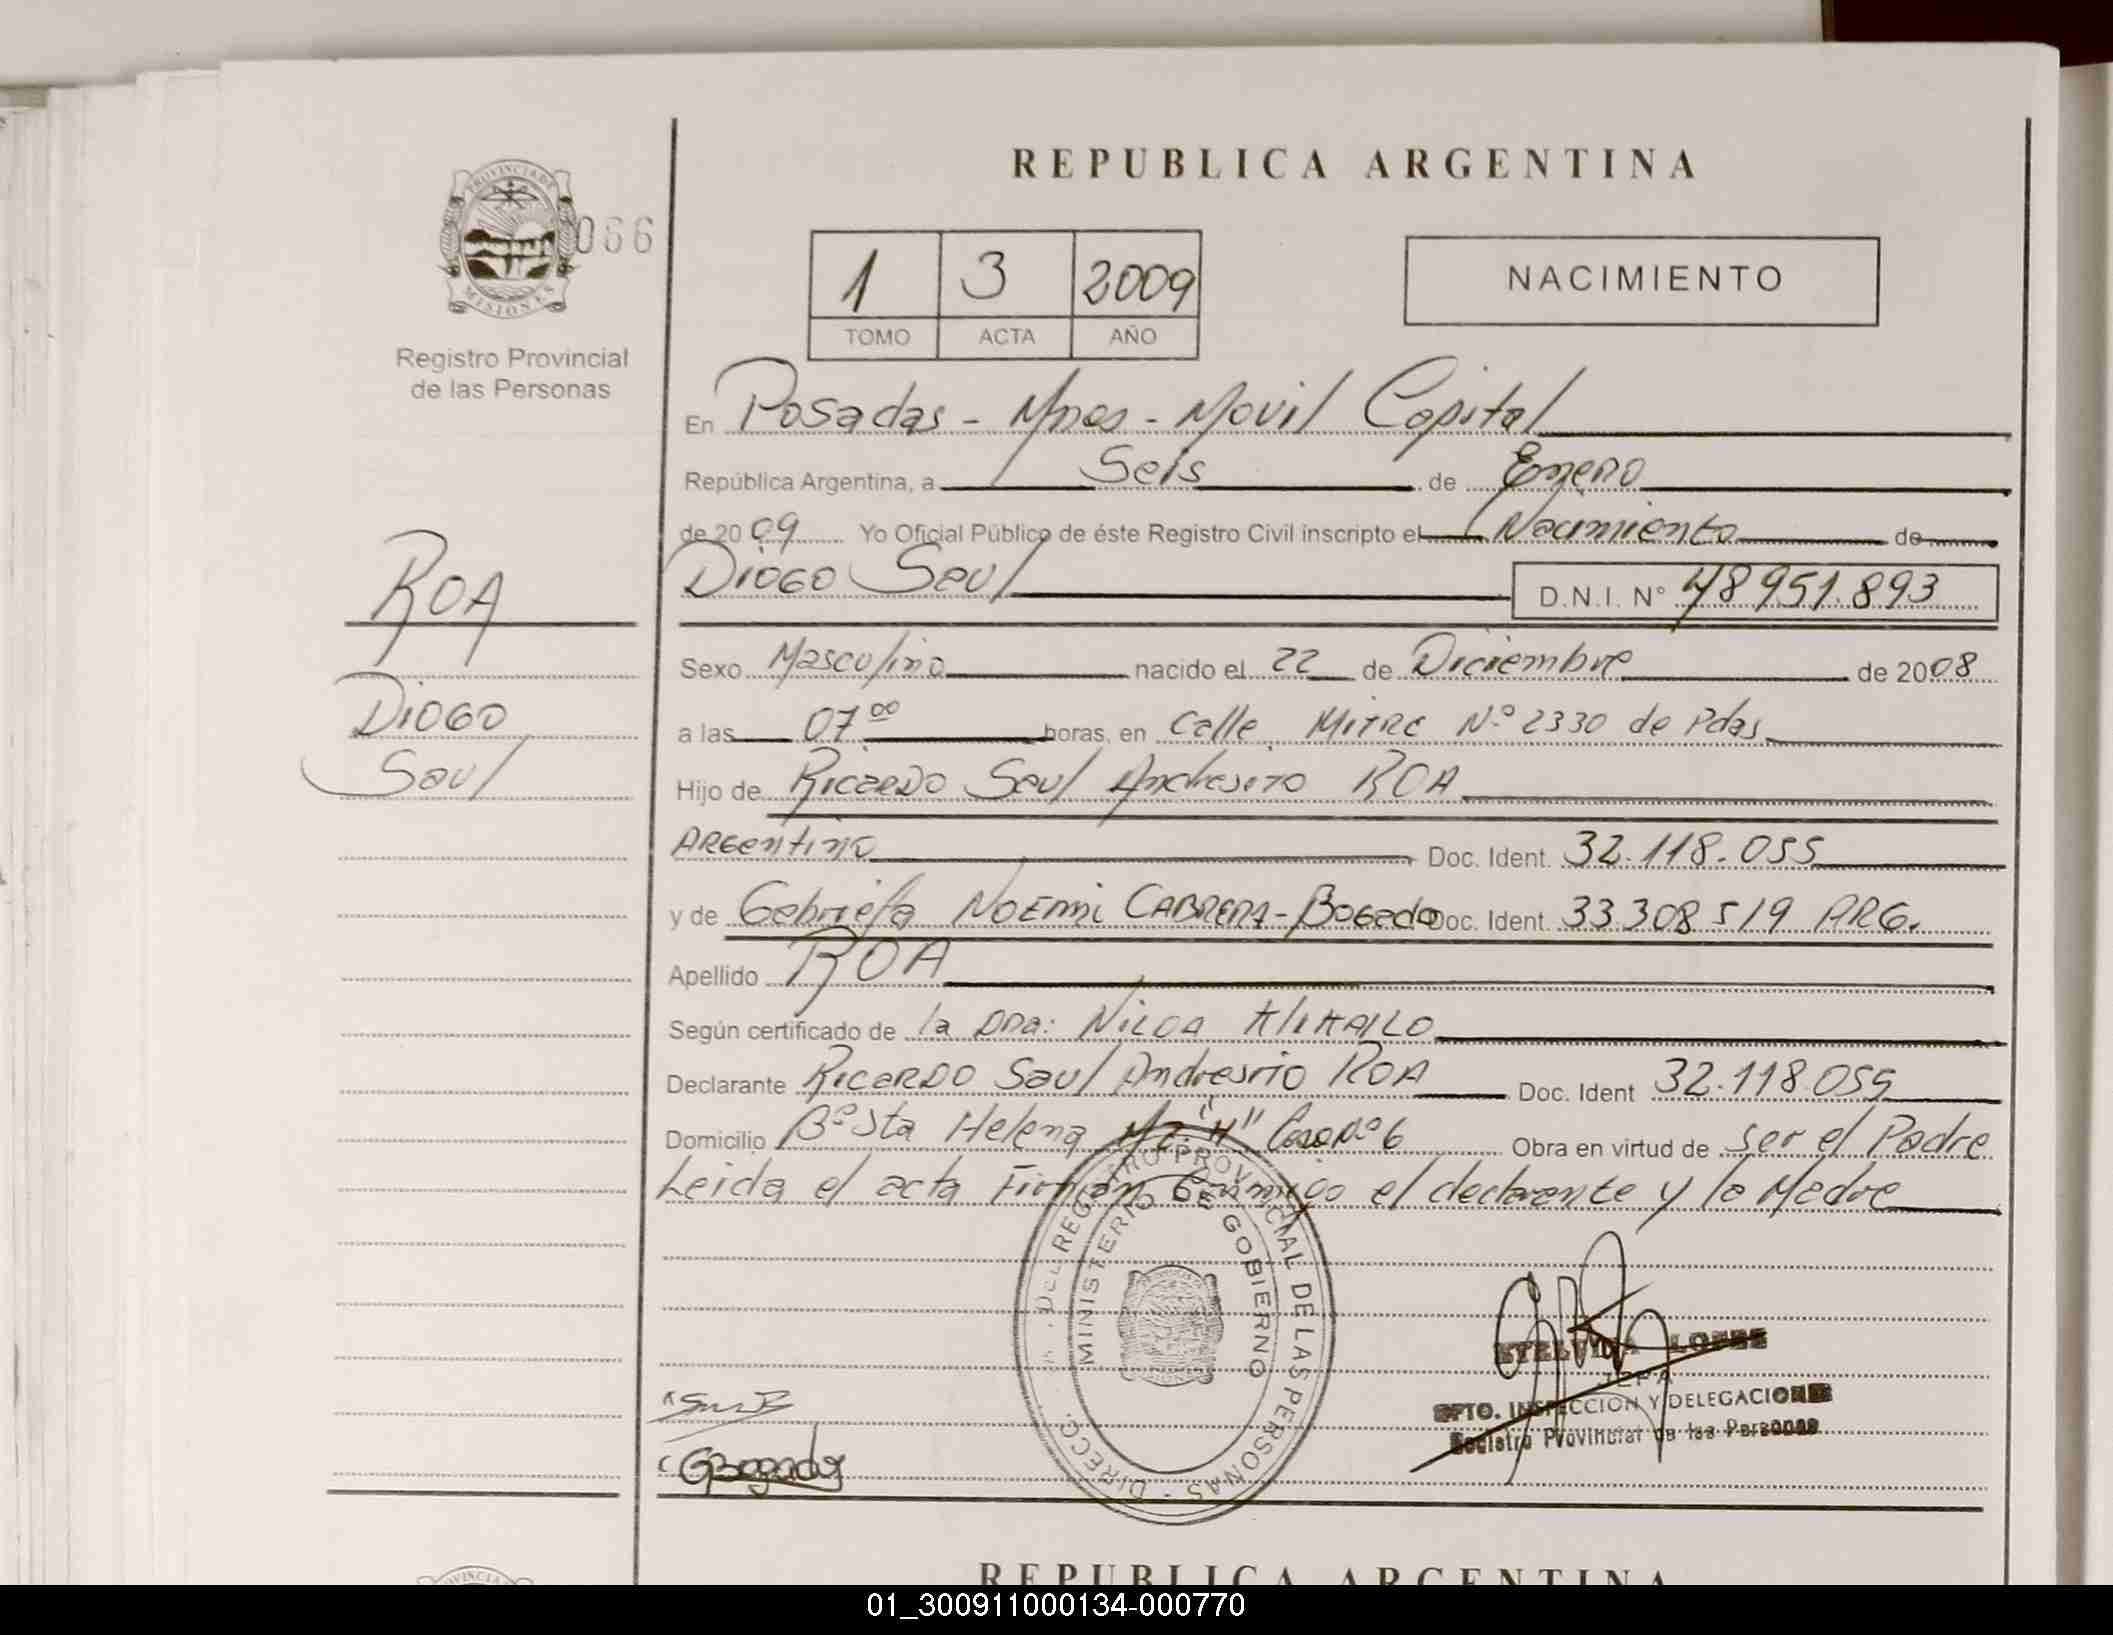 REPUBLICA ARGENTINA
PROVINCIA DE MISIONES
066
Registro Provincial
de las Personas
1 3 2009
TOMO ACTA AÑO
NACIMIENTO
En Posadas - Mnes - Movil Capital
República Argentina, a Seis de Enero
de 2009 Yo Oficial Público de éste Registro Civil inscripto el Nacimiento de
Diogo Saul D.N.I. N° 48951.893
ROA
Diogo
Saul
Sexo Masculino nacido el 22 de Diciembre de 2008
a las 07 00 horas, en Calle Mitre N° 2330 de Pdas
Hijo de Ricardo Saul Andresito ROA
Argentino Doc. Ident. 32.118.055
y de Gabriela Noemi CABRERA - Bogado Doc. Ident. 33.308519 ARG.
Apellido ROA
Según certificado de la DRA: Nilda
Declarante Ricardo Saul Andresito ROA Doc. Ident 32.118.055
Domicilio B° Sta Helena Mz. "H" Casa N° 6 Obra en virtud de ser el Padre
Leida el acta Firman Conmigo el declarante y la Madre
DIRECC. DEL REGISTRO PROVINCIAL DE LAS PERSONAS
MINISTERIO DE GOBIERNO
LOPEZ
JEFA
DPTO. INSPECCION Y DELEGACIONES
Registro Provincial de las Personas
GBogado
REPUBLICA ARGENTINA
01_300911000134-000770